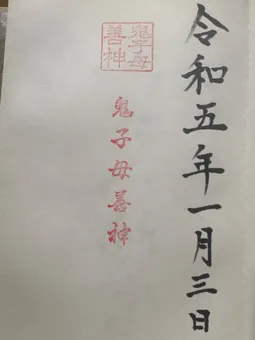 令和五年一月三日
鬼子母善神
鬼子母
善神